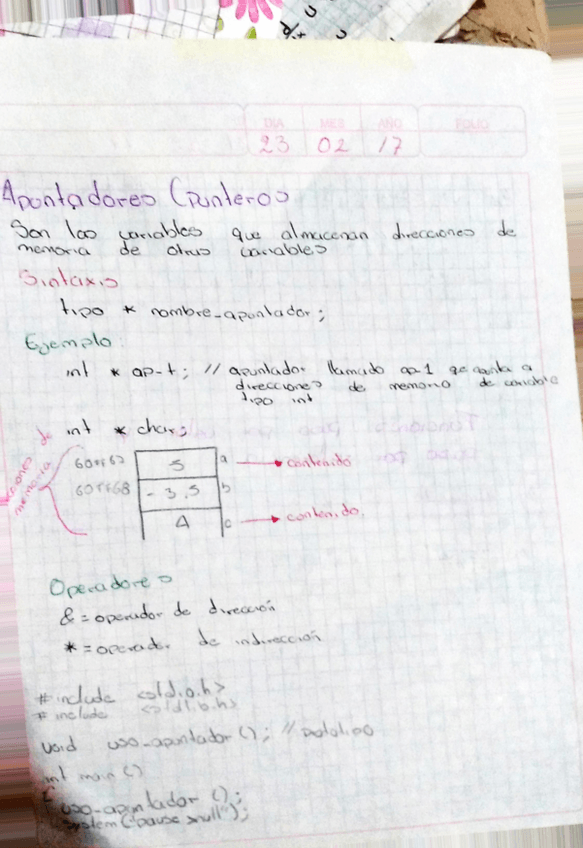 DIA MES AÑO FOLIO
23 02 17
Apontadores (punteros
Son las variables que almacenan direcciones de
memoria de otras variables
Sintaxis
tipo * nombre_apontador;
Ejemplo:
int * ap-t; // apuntador llamado ap1 que apunta a
direcciones de memoria de variable
tipo int
int * char;
5 a contenido
-3,5 b
A c contenido.
memoria
Operadores
& = operador de dirección
* = operador de indirección
#include <stdio.h>
#include <stdlib.h>
void uso_apontador (); // prototipo
int main ()
{
uso_apontador ();
system ("pause>null");